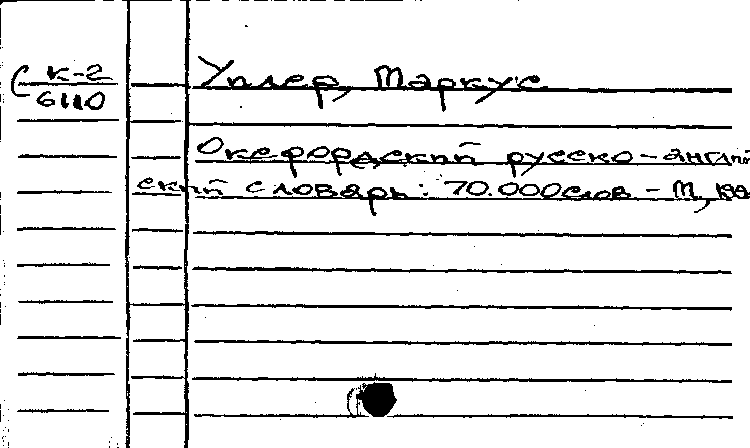 К-2
6110
Уилер, Маркус
Оксфордский русско-англий
ский словарь: 70.000 слов - М,